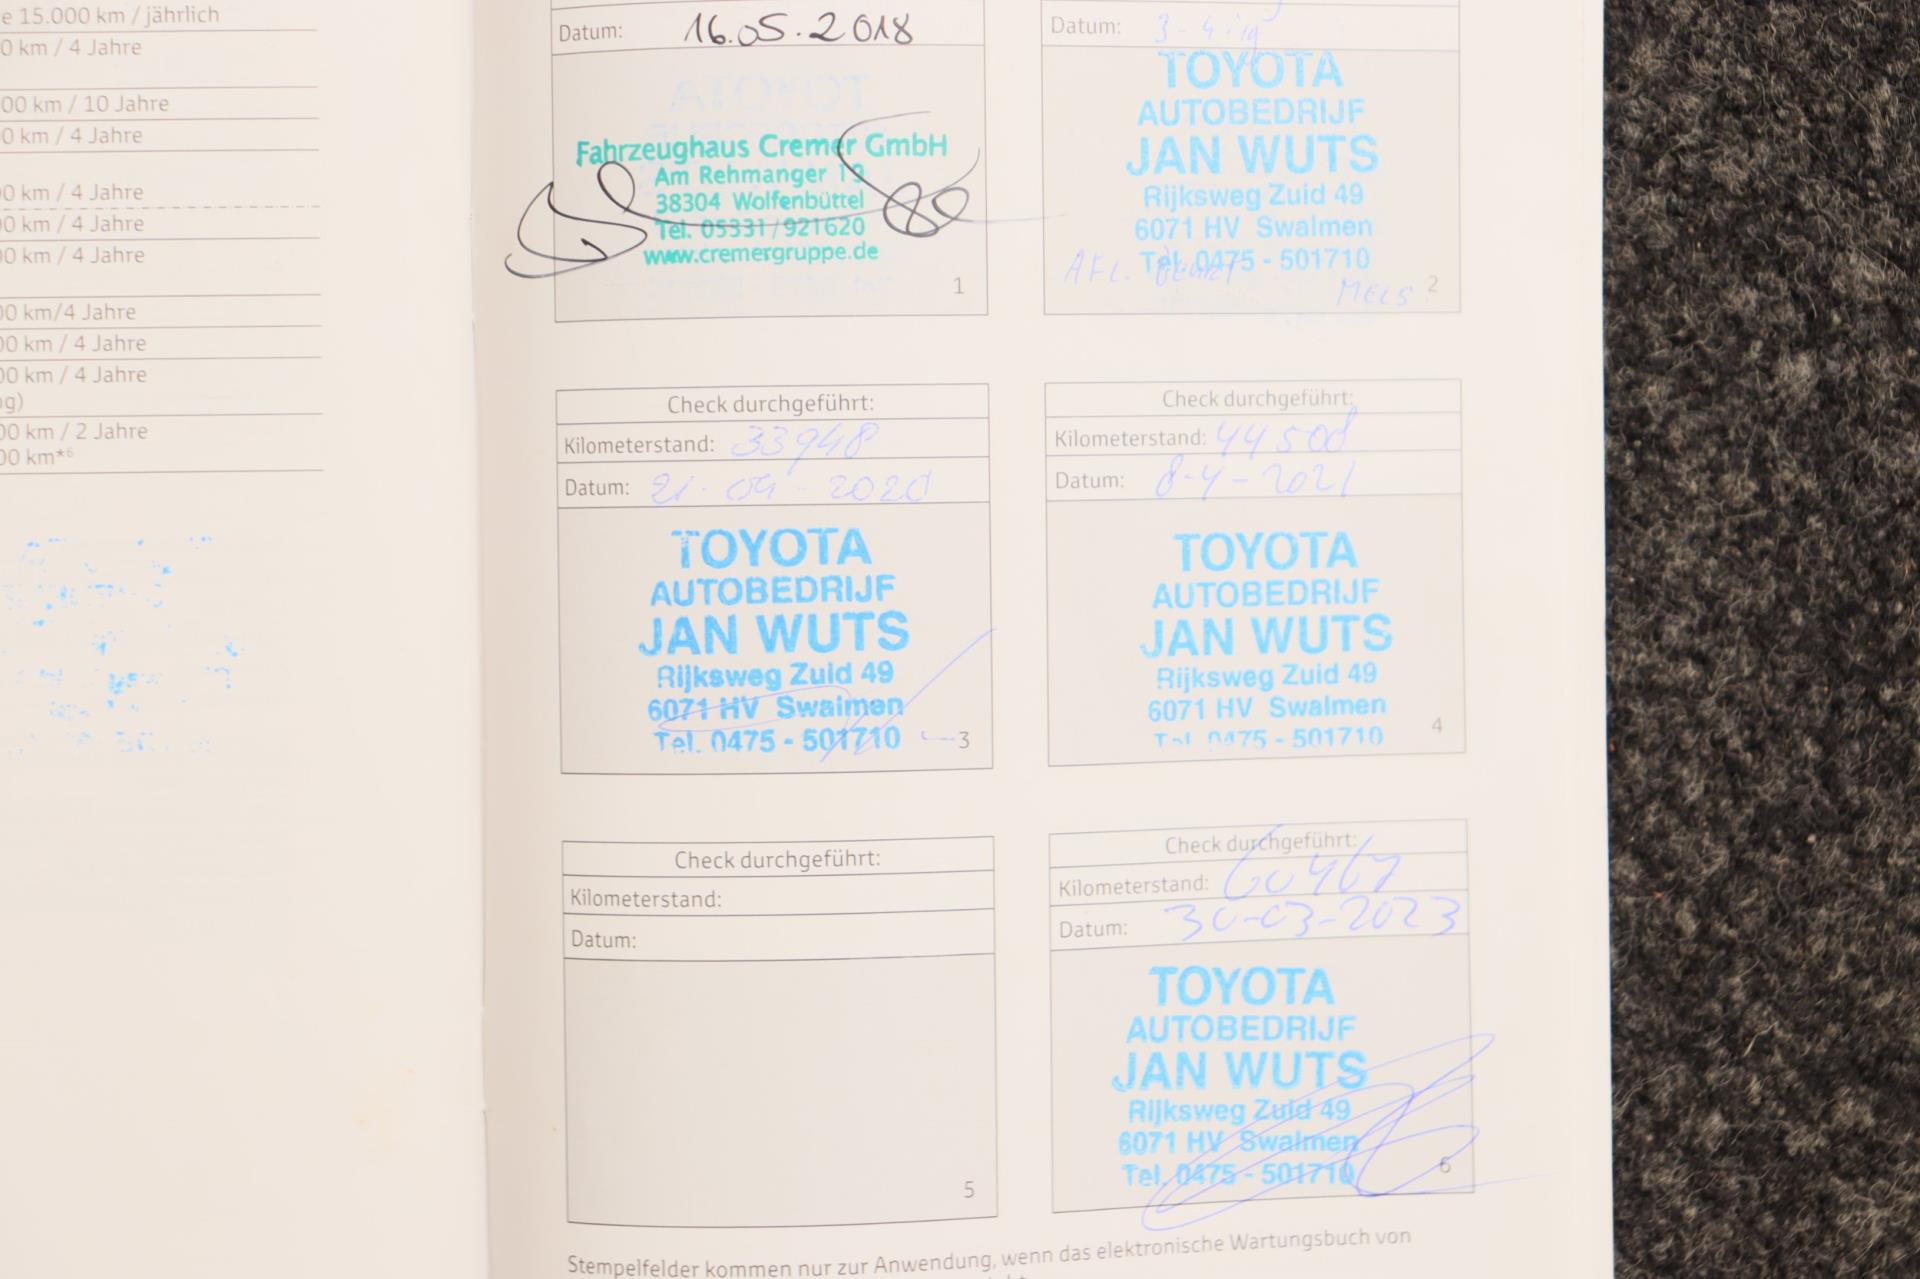 e 15.000 km / jährlich
0 km / 4 Jahre
00 km / 10 Jahre
0 km / 4 Jahre
00 km / 4 Jahre
00 km / 4 Jahre
00 km / 4 Jahre
00 km/4 Jahre
00 km / 4 Jahre
00 km / 4 Jahre
ng)
00 km / 2 Jahre
00 km*6
Datum: 16.05.2018
Fahrzeughaus Cremer GmbH
Am Rehmanger 19
38304 Wolfenbüttel
Tel. 05331/921620
www.cremergruppe.de
1
Datum: 3-4-19
TOYOTA
AUTOBEDRIJF
JAN WUTS
Rijksweg Zuid 49
6071 HV Swalmen
Tel. 0475 - 501710
AFL. BEURT
MELS
2
Check durchgeführt:
Kilometerstand: 33948
Datum: 21-04-2020
TOYOTA
AUTOBEDRIJF
JAN WUTS
Rijksweg Zuid 49
6071 HV Swalmen
Tel. 0475 - 501710
3
Check durchgeführt:
Kilometerstand: 44508
Datum: 8-4-2021
TOYOTA
AUTOBEDRIJF
JAN WUTS
Rijksweg Zuid 49
6071 HV Swalmen
Tel. 0475 - 501710
4
Check durchgeführt:
Kilometerstand:
Datum:
5
Check durchgeführt:
Kilometerstand: 60467
Datum: 30-03-2023
TOYOTA
AUTOBEDRIJF
JAN WUTS
Rijksweg Zuid 49
6071 HV Swalmen
Tel. 0475 - 501710
6
Stempelfelder kommen nur zur Anwendung, wenn das elektronische Wartungsbuch von